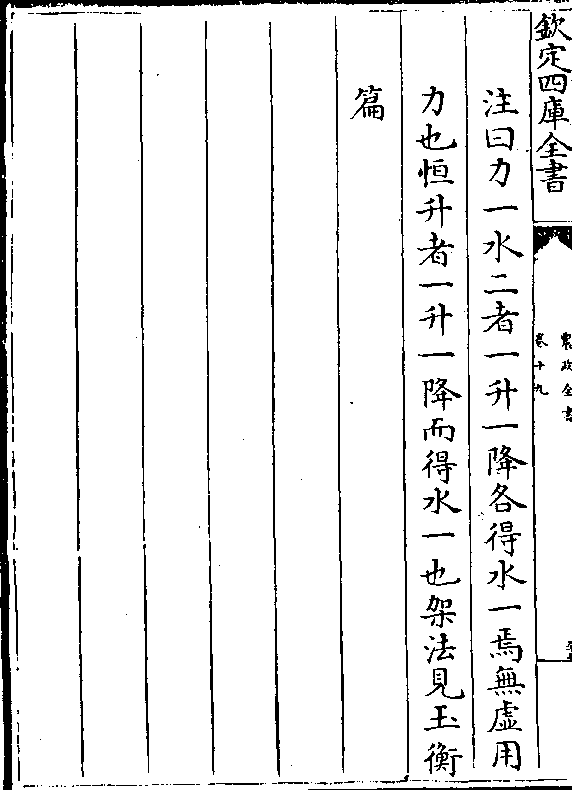 欽定四庫全書
農政全書
卷十九
注曰力一水二者一升一降各得水一焉無虛用
力也恒升者一升一降而得水一也架法見玉衡
篇